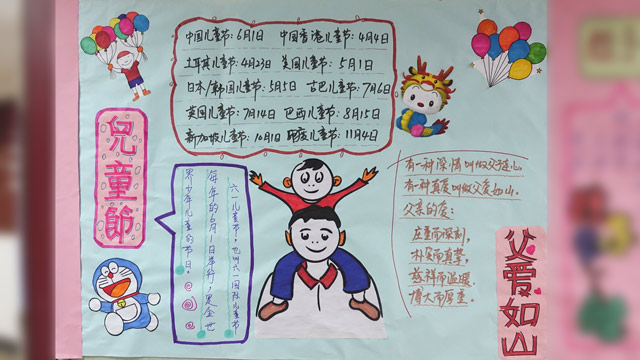 中国儿童节:6月1日 中国香港儿童节:4月4日
土耳其儿童节:4月23日 美国儿童节:5月1日
日本/韩国儿童节:5月5日 古巴儿童节:7月6日
英国儿童节:7月14日 巴西儿童节:8月15日
新加坡儿童节:10月1日 印度儿童节:11月14日
兒童節
六一儿童节,也叫六一国际儿童节
每年的6月1日举行,是全世
界少年儿童的节日
有一种深情叫做父链心
有一种真爱叫做父爱如山。
父亲的爱:
庄重而深刻,
朴实而真挚,
慈祥而温暖,
博大而厚重。
父爱如山